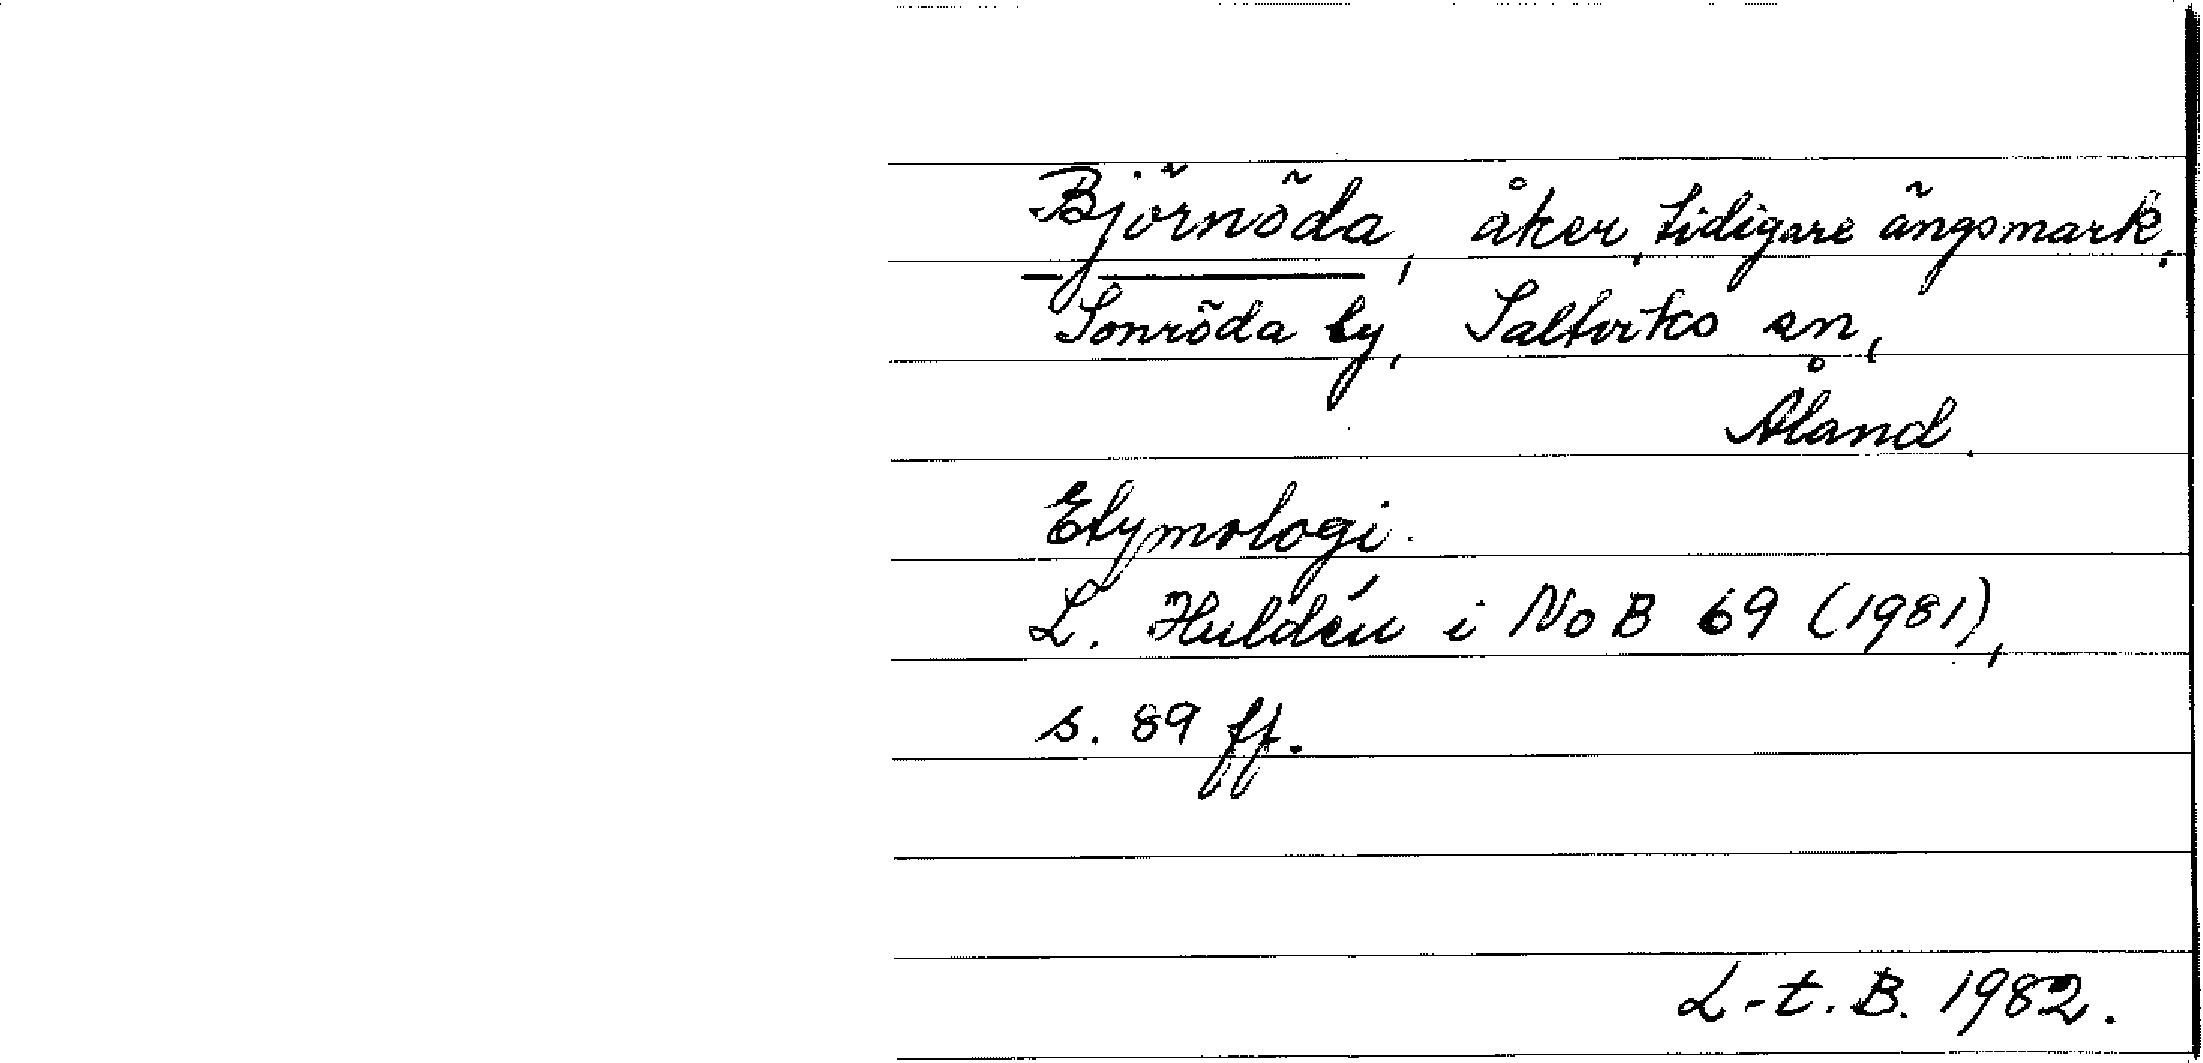 Björnöda, åker, tidigare ängsmark,
Sonröda by, Saltviks sn,
Åland.
Etymologi.
L. Huldén i NoB 69 (1981),
s. 89 ff.
L-t. B. 1982.